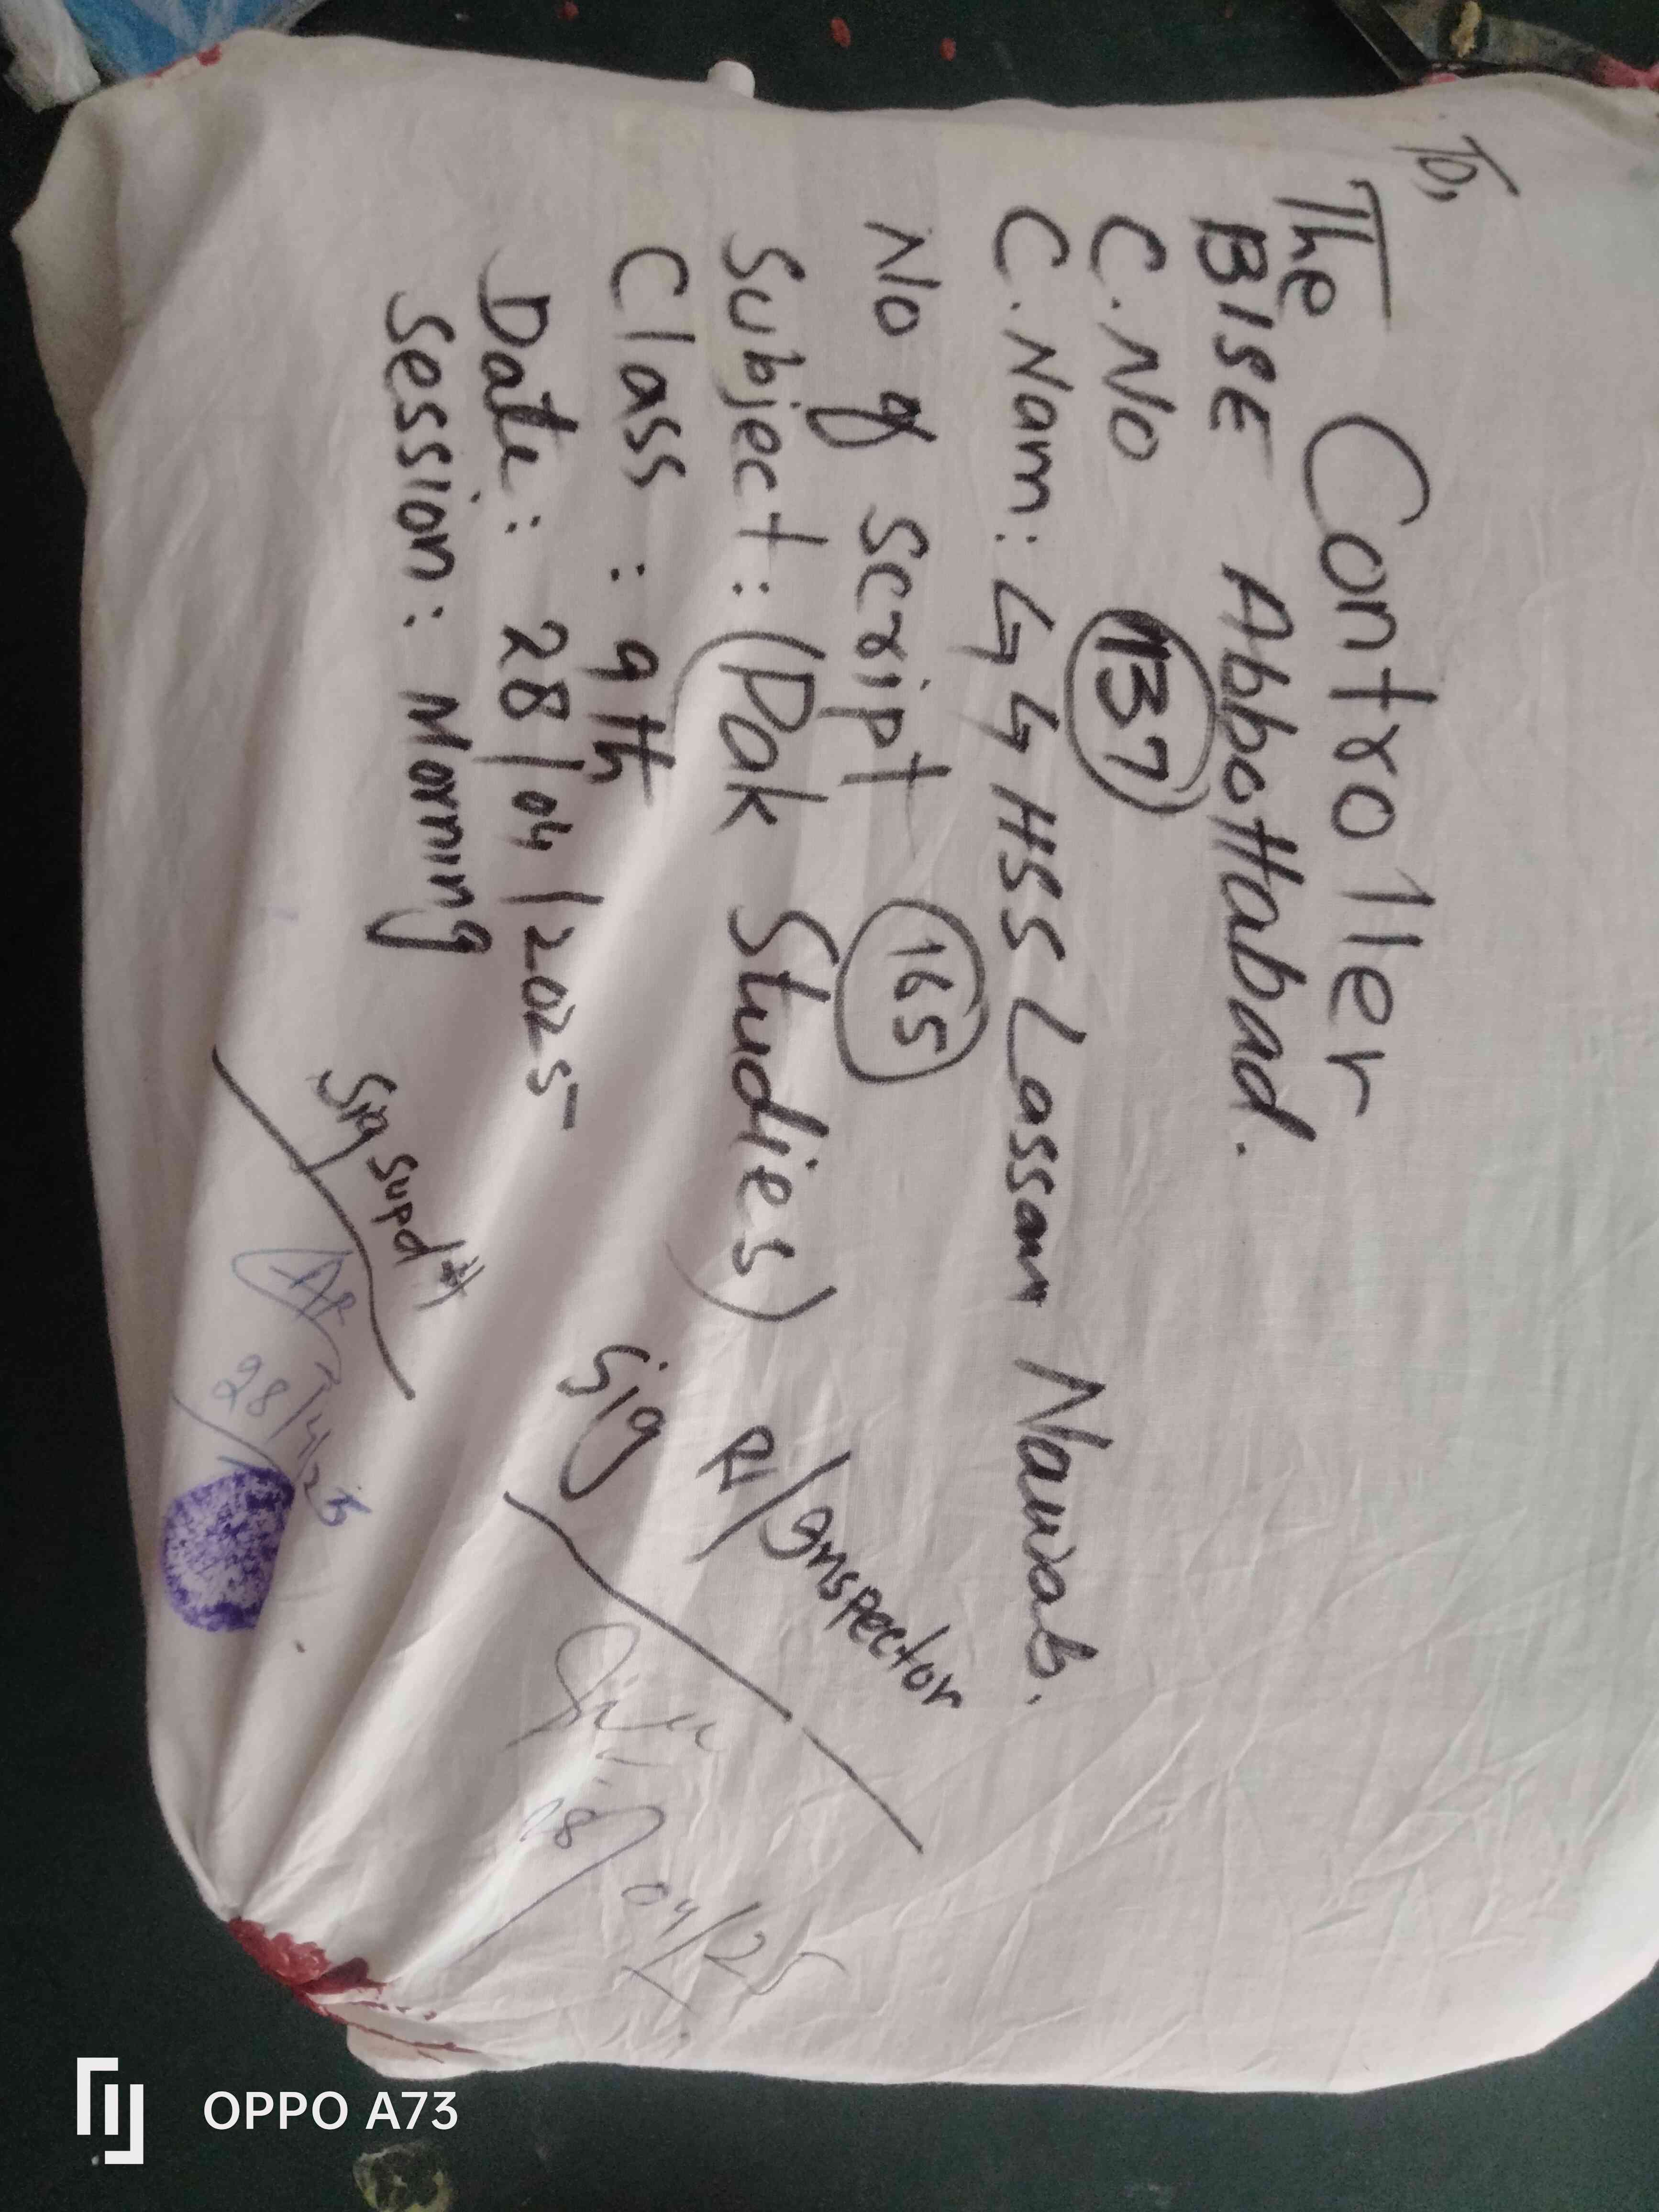 To,
The Controller
BISE Abbottabad.
C.No 137
C.Nam: GGHSS Lassan Nawab.
No of Script 165
Subject: (Pak Studies)
Class : 9th
Date: 28/04/2025
Session: Morning
Sig R/Inspector
28/04/25
Sig Supdt
28/4/25
OPPO A73